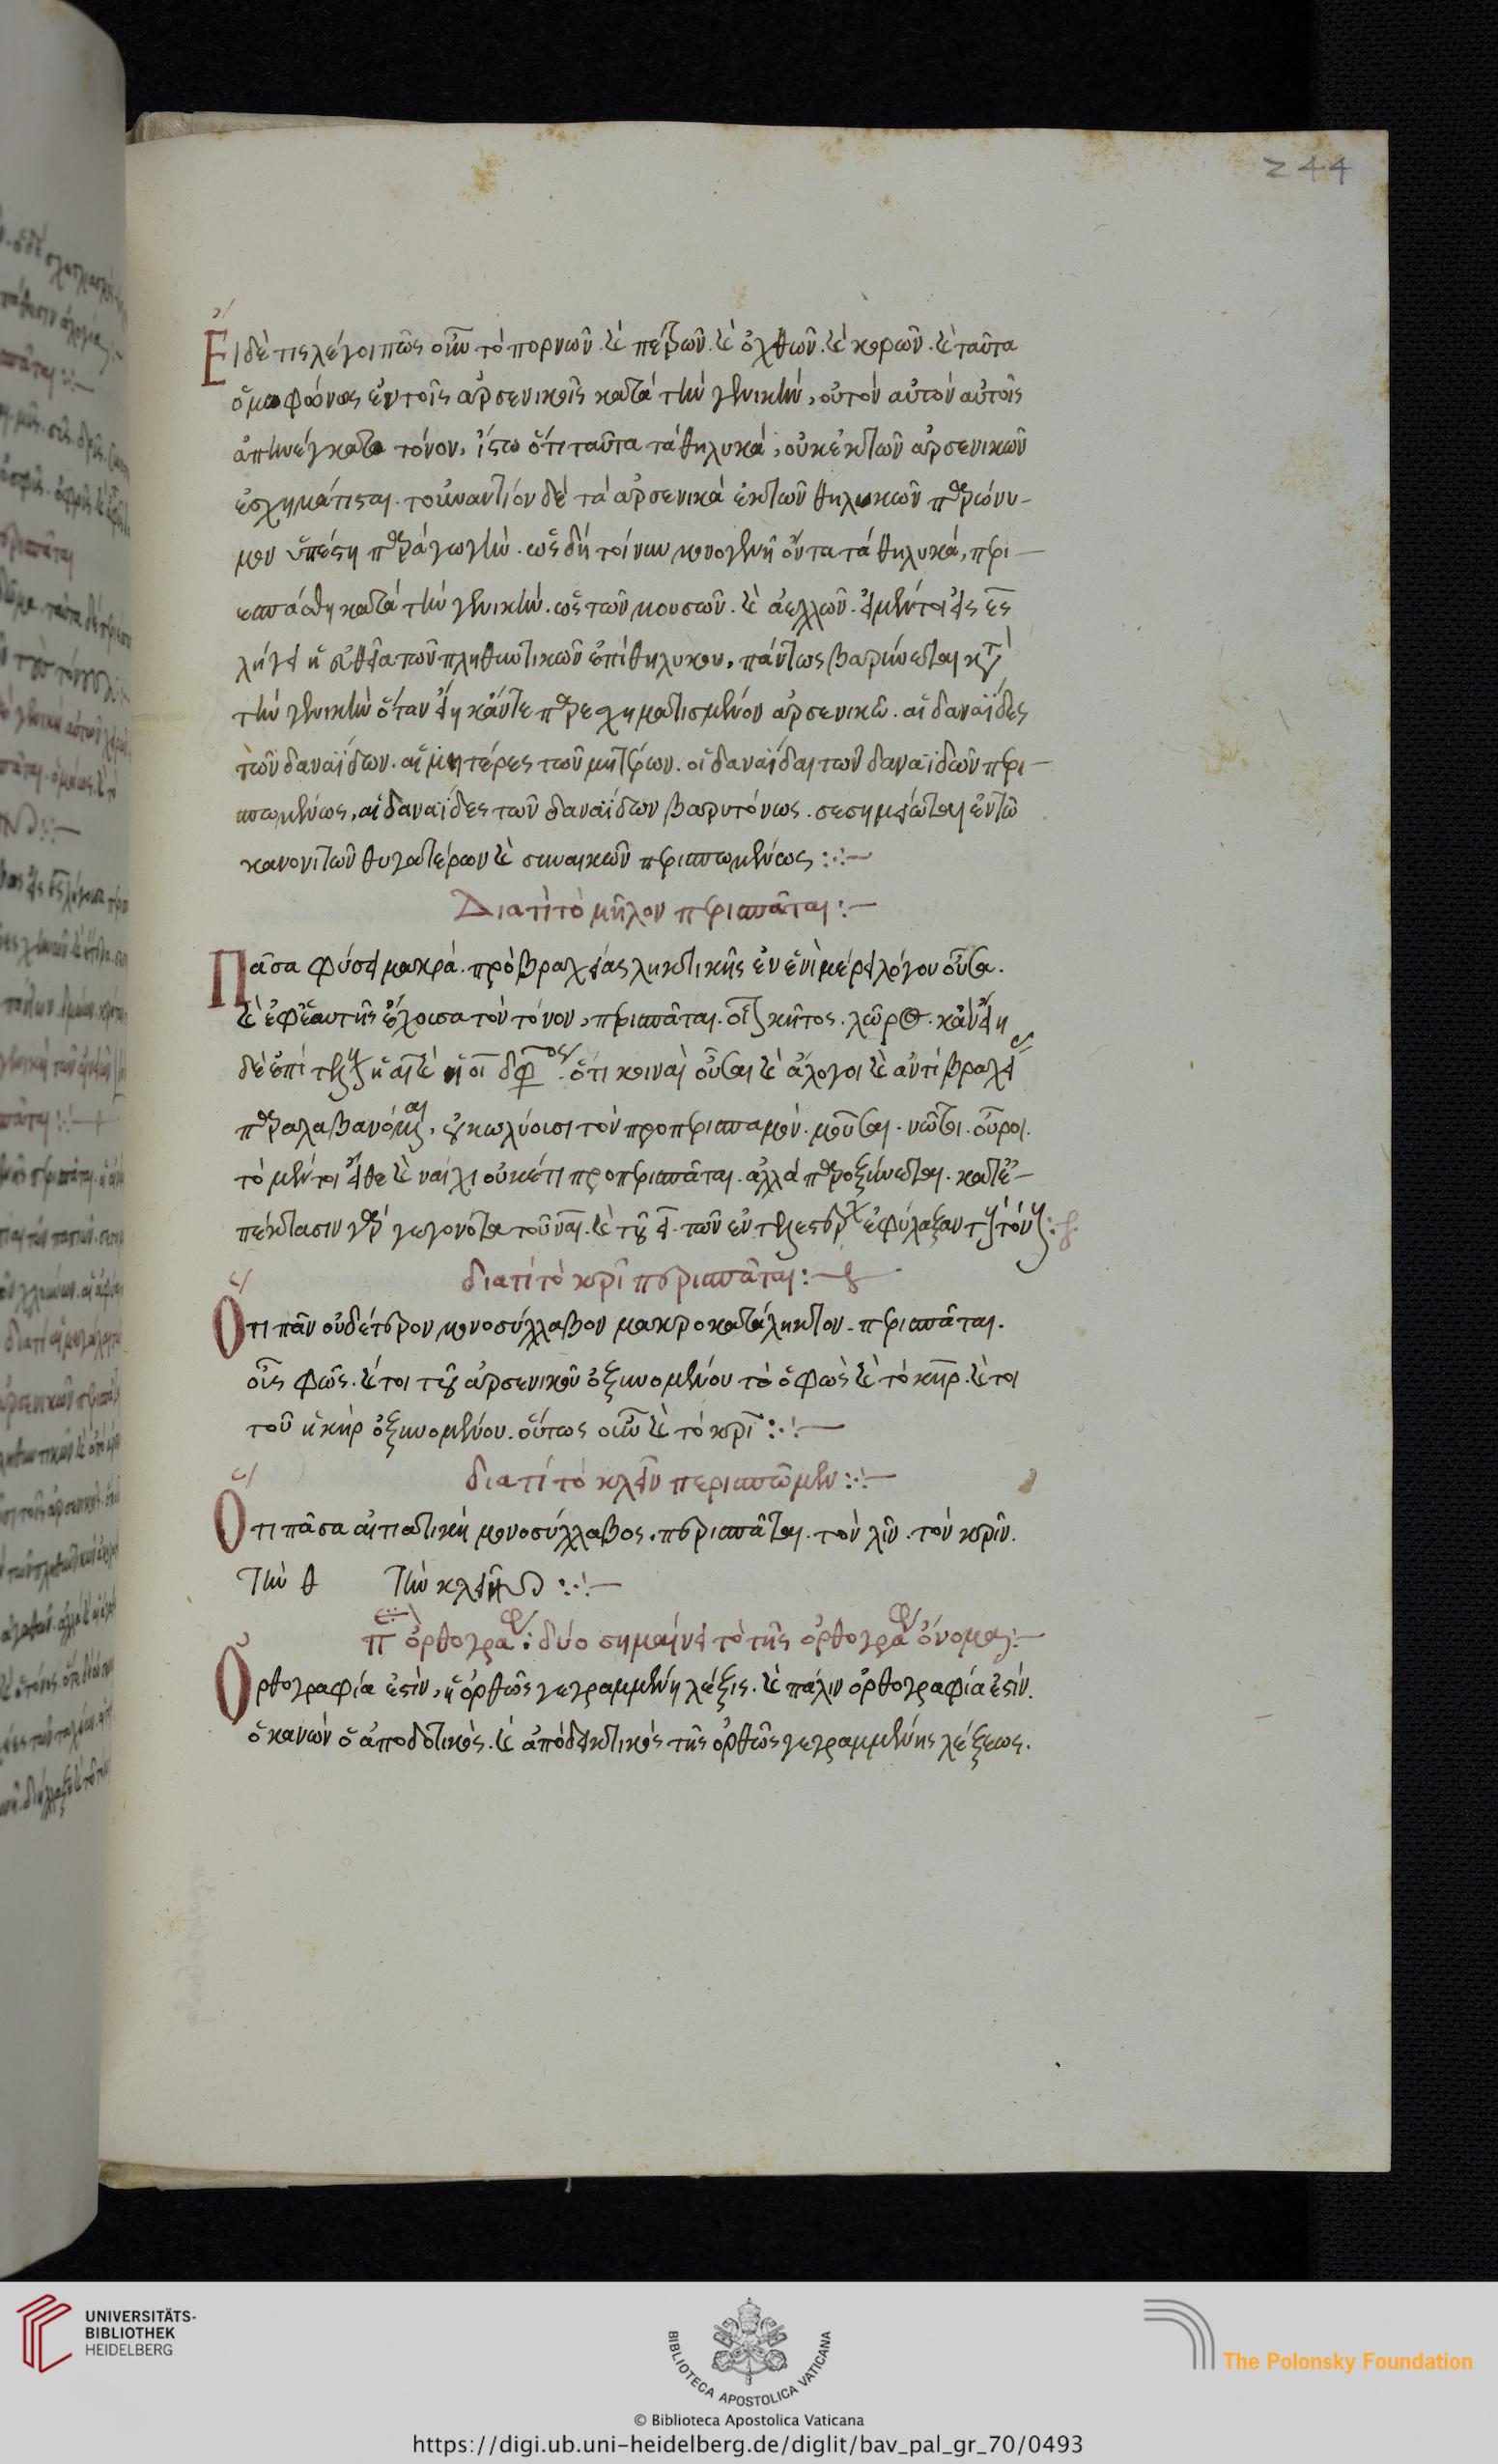 244
Εἰ δὲ τις λέγοι πῶς οὖν τὸ πορνῶν. καὶ πεζῶν. καὶ ὀχθῶν. καὶ κορῶν. καὶ ταῦτα
ὁμοφώνως ἐν τοῖς ἀρσενικοῖς κατὰ τὴν γενικὴν, οὐ τὸν αὐτὸν αὐτοῖς
ἀπηνέγκατο τόνον, ἴστω ὅτι ταῦτα τὰ θηλυκὰ, οὐκ ἐκ τῶν ἀρσενικῶν
ἐσχημάτισται. τοὐναντίον δὲ τὰ ἀρσενικὰ ἐκ τῶν θηλυκῶν παρώνυ-
μον ὑπέστη παραγωγήν. ὡς δὴ τοίνυν μονογενῆ ὄντα τὰ θηλυκὰ, περι-
εσπάσθη κατὰ τὴν γενικήν. ὡς τῶν μουσῶν. καὶ ἀελλῶν. εἰ μέντοι εἰς ες
λήγει ἡ εὐθεῖα τῶν πληθυντικῶν ἐπὶ θηλυκου, πάντως βαρύνεται κατὰ
τὴν γενικὴν ὅταν εἴη κἄντε παρεσχηματισμένον ἀρσενικῶ. αἱ δαναΐδες
τῶν δαναΐδων. αἱ μητέρες τῶν μητέρων. οἱ δαναΐδαι των δαναϊδῶν περι-
σπωμένως, αἱ δαναΐδες τῶν δαναΐδων βαρυτόνως. σεσημείωται ἐν τῶ
κανονι τῶν θυγατέρων καὶ γυναικῶν περισπωμένως:
Διατί τὸ μῆλον περισπᾶται:
Πᾶσα φύσει μακρὰ. πρὸ βραχείας ληκτικῆς ἐν ἑνὶ μέρει λόγου οὖσα.
καὶ ἐφ ἑαυτῆς ἔχουσα τὸν τόνον, περισπᾶται. οἷον κῆτος. χῶρος. κἂν εἴη
δὲ ἐπὶ τέλους ἡ αι καὶ ἡ οι δίφθογγος. ὅτι κοιναὶ οὖσαι καὶ ἄλογοι καὶ ἀντὶ βραχείας
παραλαμβανόμεναι, οὐ κωλύουσι τὸν προπερισπώμενον. μοῦσαι. νῶτοι. οὖροι.
τὸ μέντοι εἴθε καὶ ναίχι οὐκέτι προπερισπᾶται. ἀλλὰ παροξύνεται. κατ ἐ-
πέκτασιν γὰρ γεγονότα τοῦ ναὶ. καὶ τοῦ εἰ. των ἐν τέλει ἐφύλαξαν τὸν τόνον:
διατί τὸ κρῖ περισπᾶται:
Ὅτι πᾶν οὐδέτερον μονοσύλλαβον μακροκατάληκτον. περισπᾶται.
οἷον φῶς. καίτοι τοῦ ἀρσενικοῦ ὀξυνομένου τὸ ὁ φὼς καὶ τὸ κῆρ. καίτοι
τοῦ ἡ κὴρ ὀξυνομένου. οὕτως οὖν καὶ τὸ κρῖ:
διατί τὸ κλεῖν περισπῶμεν:
Ὅτι πᾶσα αἰτιατικὴ μονοσύλλαβος. περισπᾶται. τὸν λῖν. τὸν κρῖν.
τὴν θ τὴν κλεῖν:
περὶ ὀρθογραφίας: δύο σημαίνει τὸ τῆς ὀρθογραφίας ὄνομα:
Ὀρθογραφία ἐστὶν, ἡ ὀρθῶς γεγραμμένη λέξις. καὶ πάλιν ὀρθογραφία ἐστίν.
ὁ κανὼν ὁ ἀποδοτικὸς. καὶ ἀποδεικτικὸς τῆς ὀρθῶς γεγραμμένης λέξεως.
UNIVERSITÄTS-
BIBLIOTHEK
HEIDELBERG
BIBLIOTECA APOSTOLICA VATICANA
The Polonsky Foundation
© Biblioteca Apostolica Vaticana
https://digi.ub.uni-heidelberg.de/diglit/bav_pal_gr_70/0493